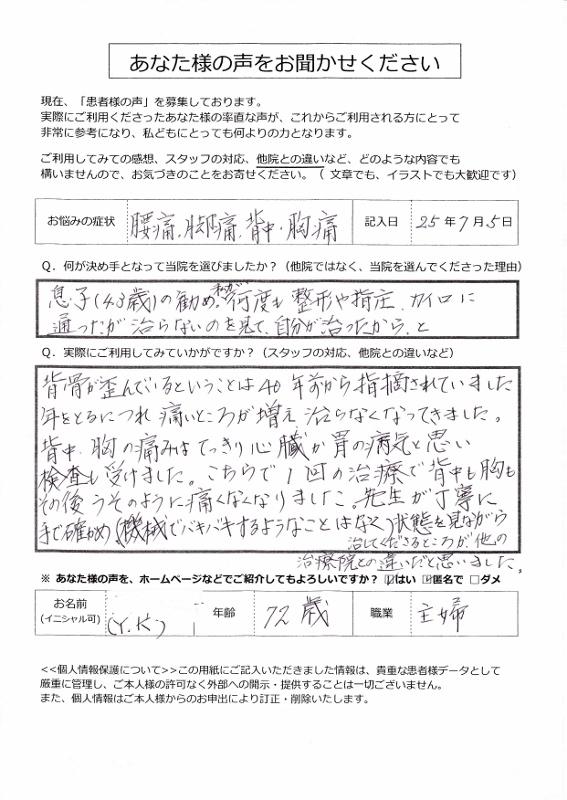 あなた様の声をお聞かせください
現在、「患者様の声」を募集しております。
実際にご利用くださったあなた様の率直な声が、これからご利用される方にとって
非常に参考になり、私どもにとっても何よりの力となります。
ご利用してみての感想、スタッフの対応、他院との違いなど、どのような内容でも
構いませんので、お気づきのことをお寄せください。（ 文章でも、イラストでも大歓迎です）
お悩みの症状 腰痛、脚痛、背中・胸痛 記入日 25年7月5日
Q．何が決め手となって当院を選びましたか？（他院ではなく、当院を選んでくださった理由）
息子(43歳)の勧め。私が何度も整形や指圧、カイロに
通ったが治らないのを見て、自分が治ったから、と
Q．実際にご利用してみていかがですか？（スタッフの対応、他院との違いなど）
背骨が歪んでいるということは40年前から指摘されていました
年をとるにつれ痛いところが増え治らなくなってきました。
背中、胸の痛みはてっきり心臓か胃の病気と思い
検査も受けました。こちらで1回の治療で背中も胸も
その後うそのように痛くなくなりました。先生が丁寧に
手で確かめ(機械でバキバキするようなことはなく)状態を見ながら
治してくださるところが、他の
治療院との違いだと思いました。
※ あなた様の声を、ホームページなどでご紹介してもよろしいですか？ ☑はい ☑匿名で □ダメ
お名前 (Y.K) 年齢 72歳 職業 主婦
(イニシャル可)
<<個人情報保護について>>この用紙にご記入いただきました情報は、貴重な患者様データとして
厳重に管理し、ご本人様の許可なく外部への開示・提供することは一切ございません。
また、個人情報はご本人様からのお申出により訂正・削除いたします。